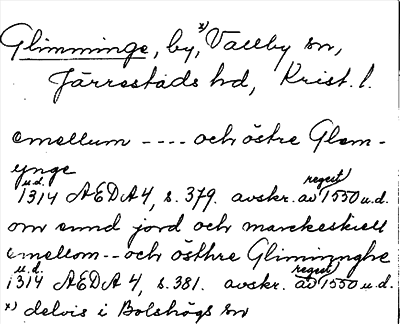 Glimminge, by, x) Vallby sn,
Järrestads hd, Krist. l.
emellum ---- och östre Glem-
ynge
u.d. 1314 ÆDA 4, s. 379. avskr. av regest 1550 u.d.
om eund jord och marckeskiell
emellom -- och östhre Glimiznghe
u.d. 1314 ÆDA 4, s. 381. avskr. av regest 1550 u.d.
x) delvis i Bolshögs sn